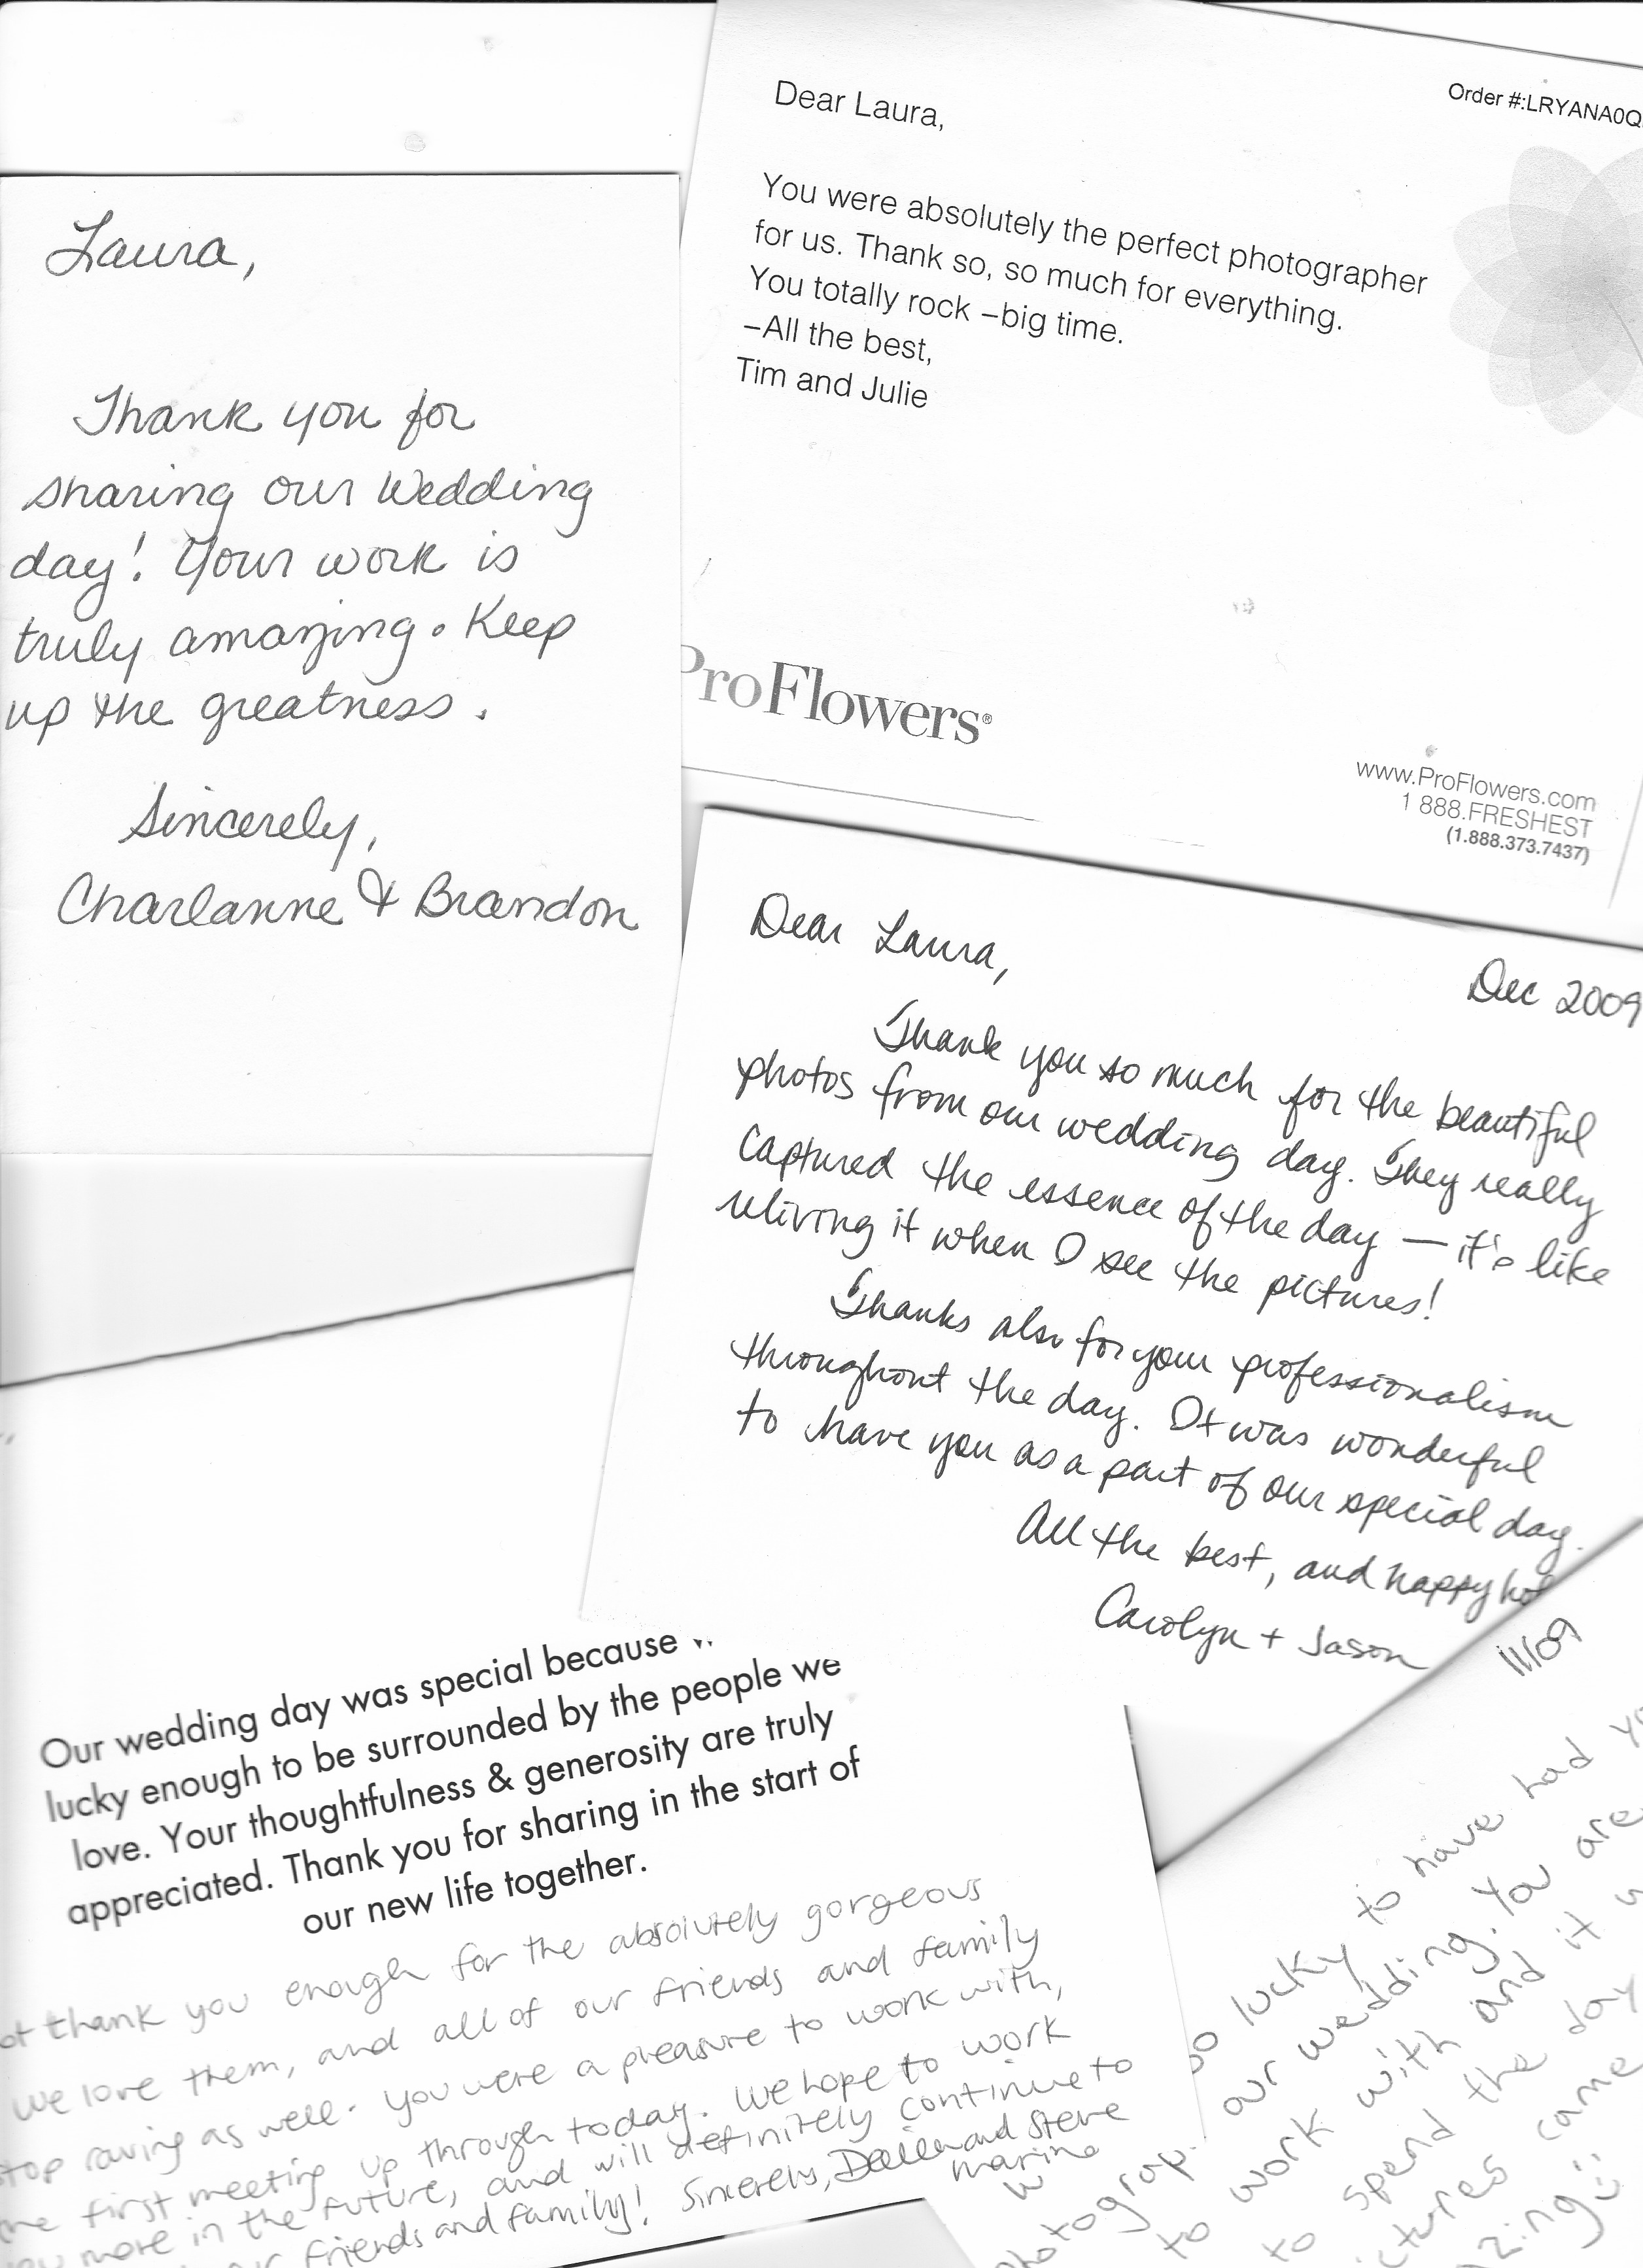 Laura,
Thank you for
sharing our Wedding
day! Your work is
truly amazing. Keep
up the greatness.
Sincerely,
Charlanne & Brandon
Order #:LRYANA0Q
Dear Laura,
You were absolutely the perfect photographer
for us. Thank so, so much for everything.
You totally rock –big time.
–All the best,
Tim and Julie
ProFlowers®
www.ProFlowers.com
1 888.FRESHEST
(1.888.373.7437)
Dear Laura,
Dec 2009
Thank you so much for the beautiful
photos from our wedding day. They really
captured the essence of the day — it's like
reliving it when I see the pictures!
Thanks also for your professionalism
throughout the day. It was wonderful
to have you as a part of our special day.
All the best, and happy hol
Carolyn + Jason
Our wedding day was special because
lucky enough to be surrounded by the people we
love. Your thoughtfulness & generosity are truly
appreciated. Thank you for sharing in the start of
our new life together.
ot thank you enough for the absolutely gorgeous
We love them, and all of our friends and family
top raving as well. You were a pleasure to work with,
first meeting up through today. We hope to work
you more in the future, and will definitely continue to
friends and family! Sincerely, and Steve
Marino
11/09
so lucky to have had
our wedding. You are
to work with and it
to spend the day
ctures came
zing :)